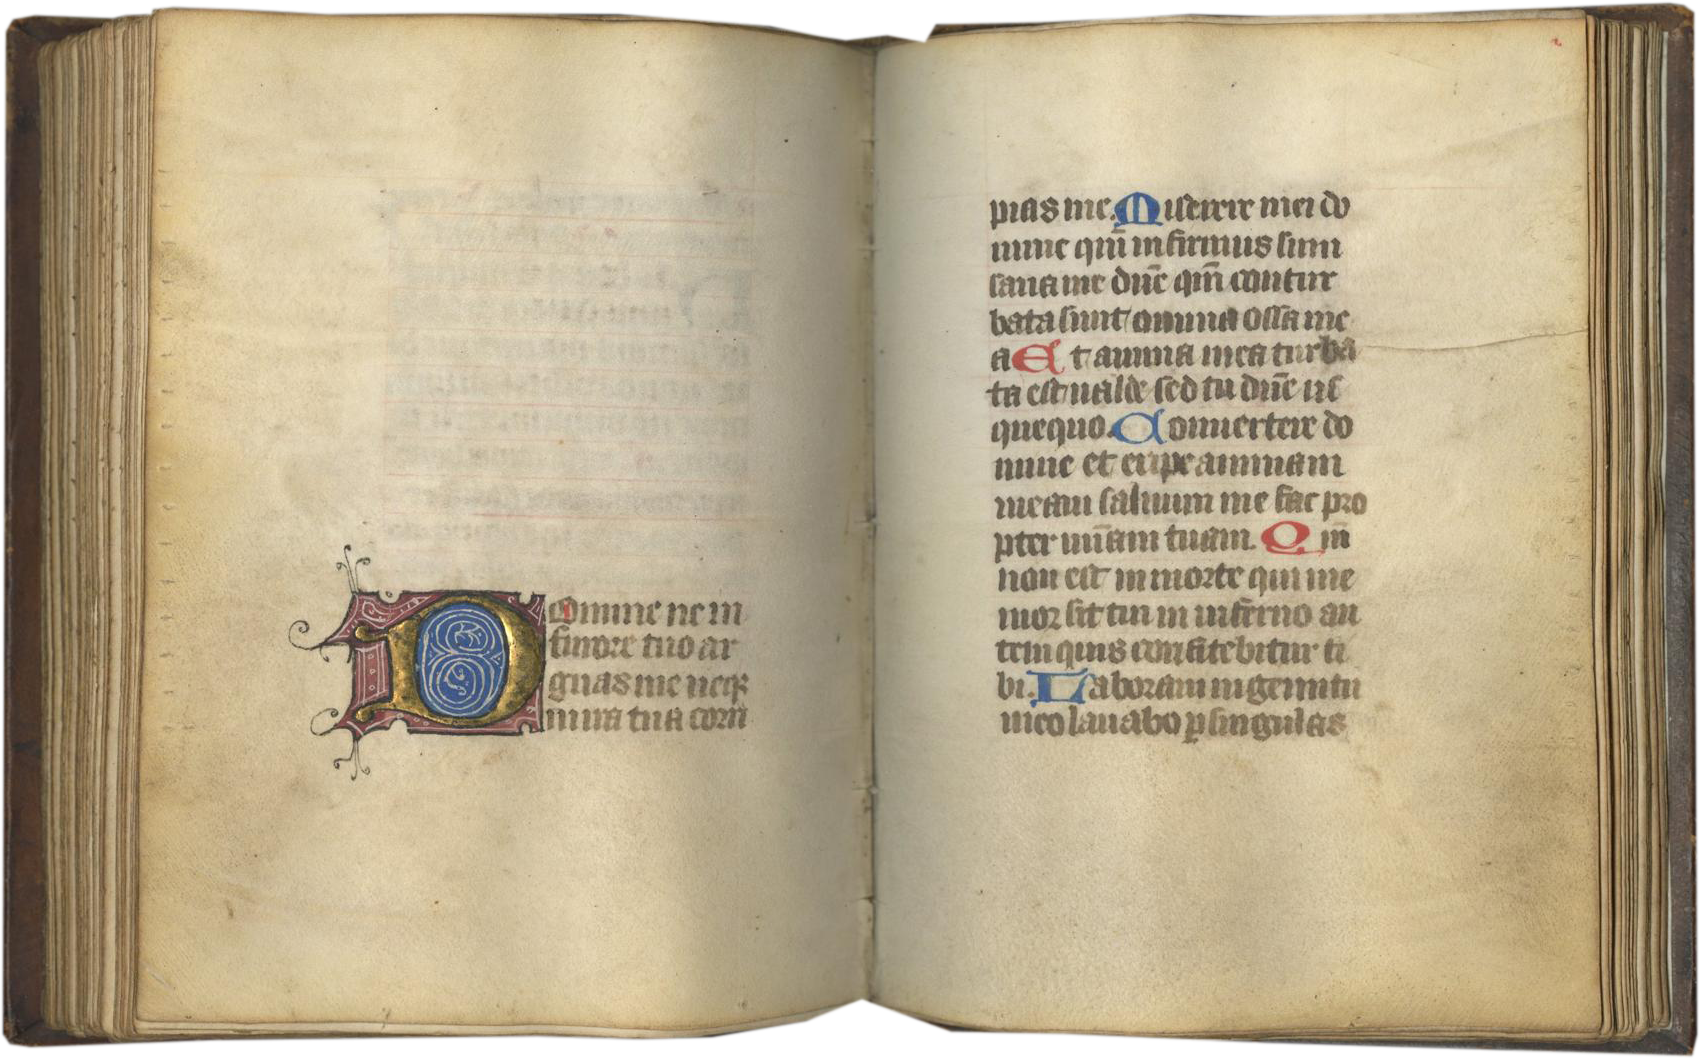 Domine ne in
furore tuo ar
guas me neq;
in ira tua corri
pias me. Miserere mei do
mine qm̄ infirmus sum
sana me dn̄e qm̄ contur
bata sunt omnia ossa me
a Et anima mea turba
ta est ualde sed tu dn̄e us
quequo. Conuertere do
mine et eripe animam
meam saluum me fac pro
pter mi̅am tuam. Qm̄
non est in morte qui me
mor sit tui in inferno au
tem quis confitebitur ti
bi. Laboraui in gemitu
meo lauabo ꝑ singulas